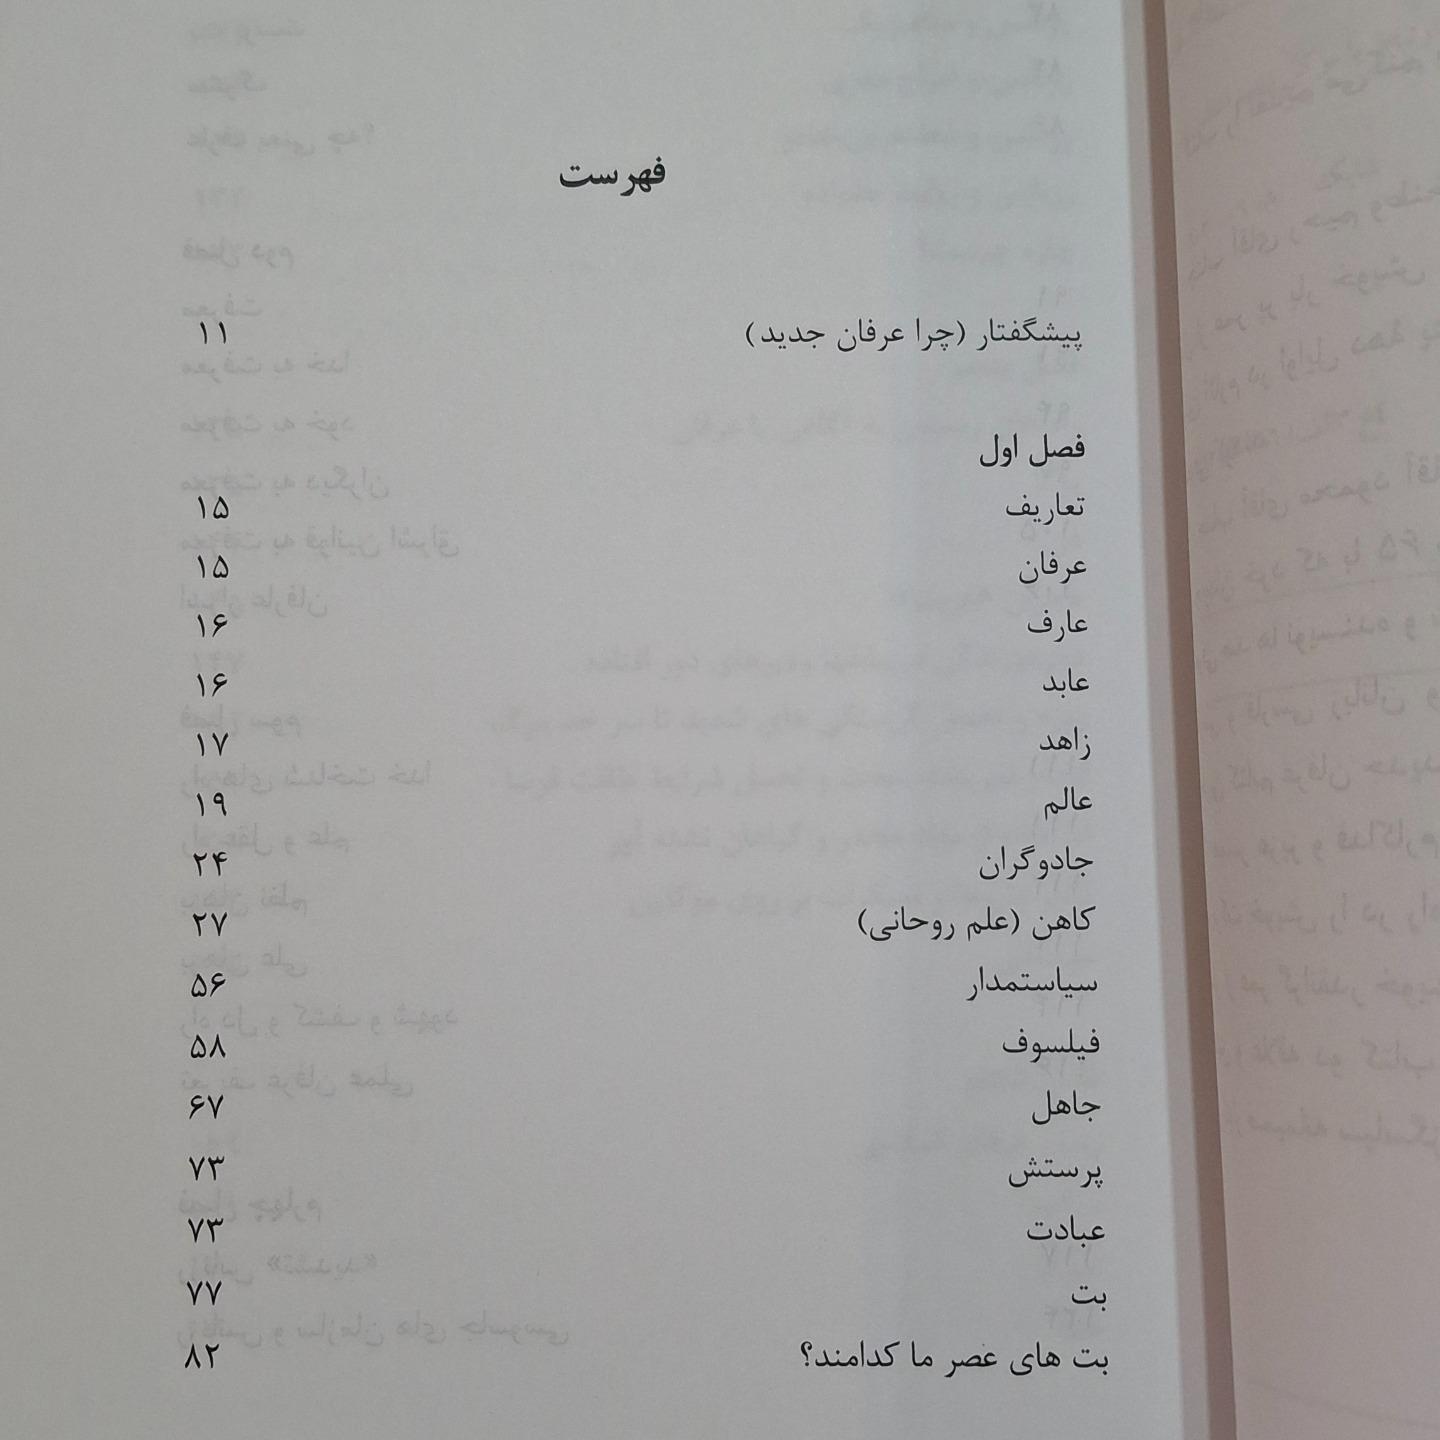 فهرست
پیشگفتار (چرا عرفان جدید) ۱۱
فصل اول
تعاریف ۱۵
عرفان ۱۵
عارف ۱۶
عابد ۱۶
زاهد ۱۷
عالم ۱۹
جادوگران ۲۴
کاهن (علم روحانی) ۲۷
سیاستمدار ۵۶
فیلسوف ۵۸
جاهل ۶۷
پرستش ۷۳
عبادت ۷۳
بت ۷۷
بت های عصر ما کدامند؟ ۸۲